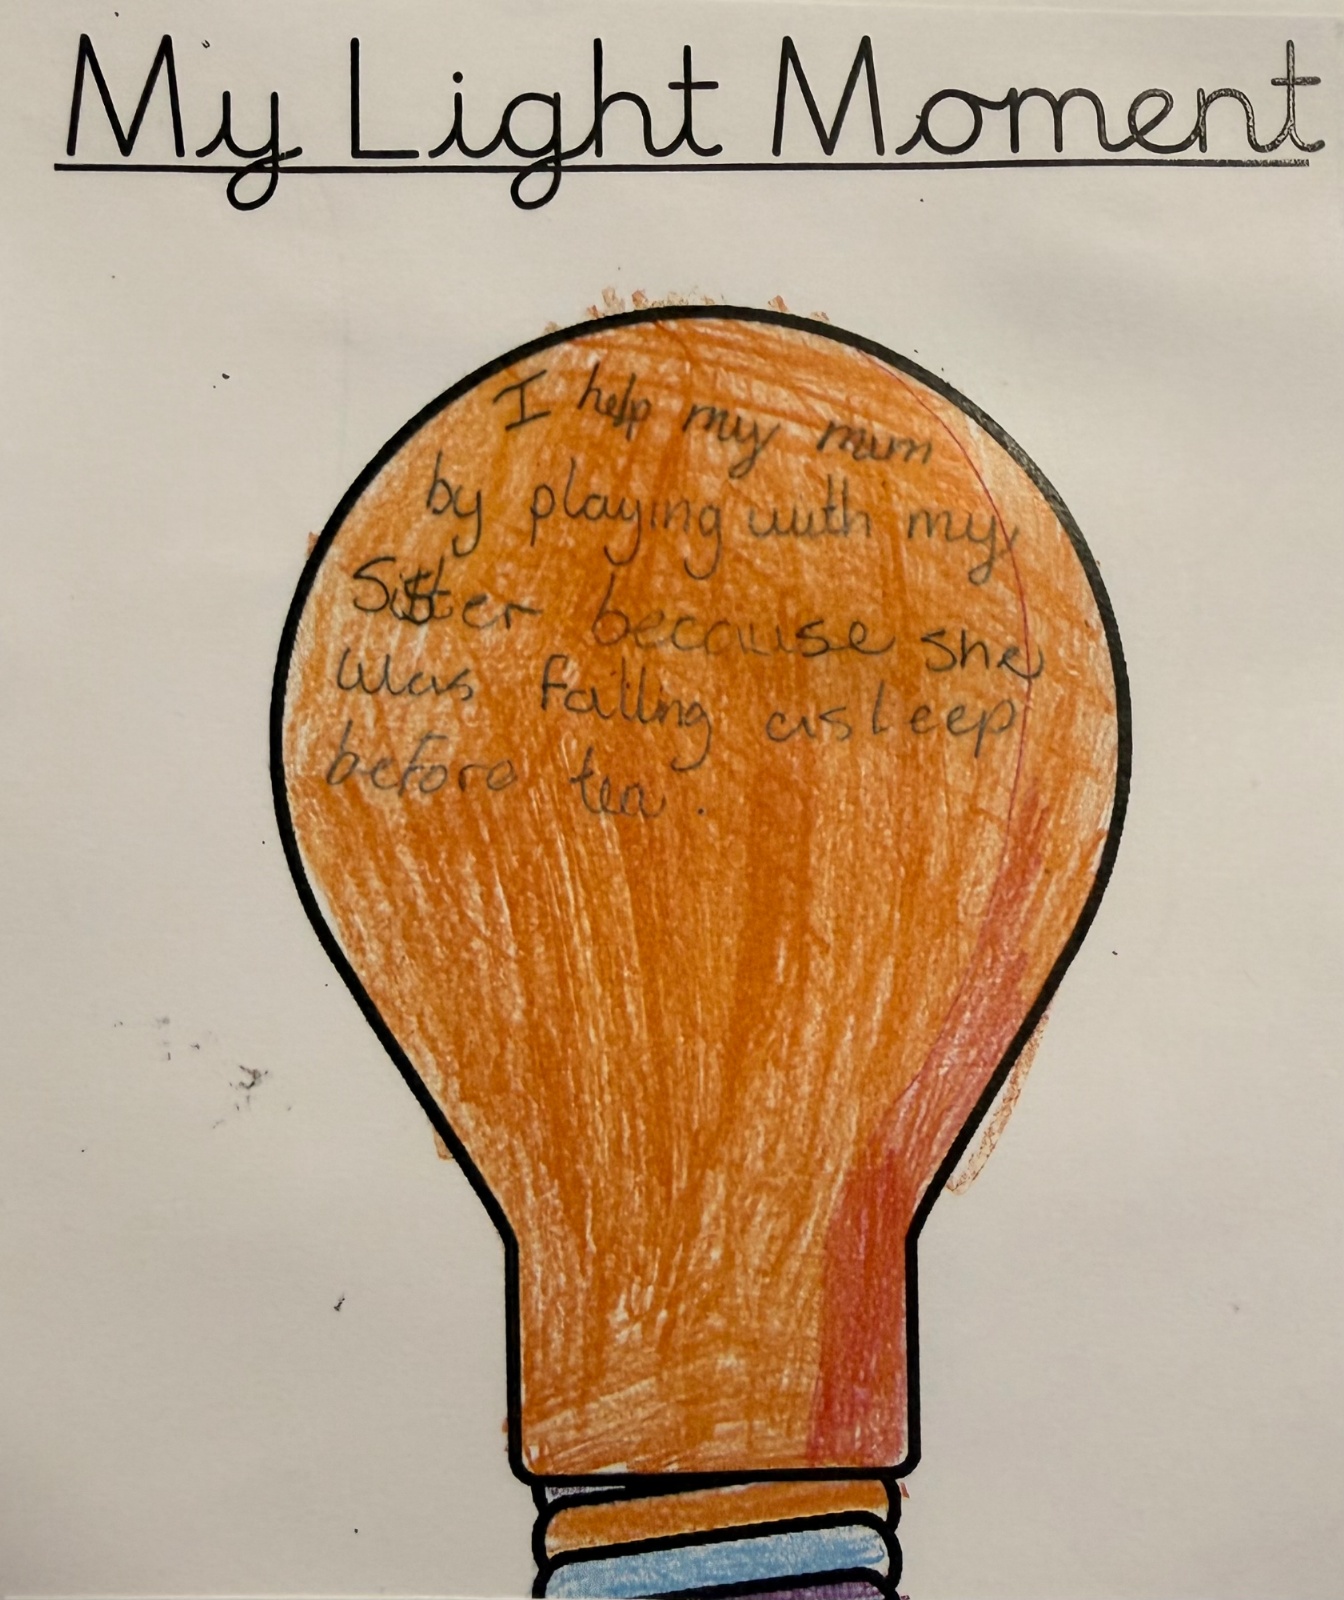 My Light Moment
I help my mum
by playing with my
Sister because she
was falling asleep
before tea.